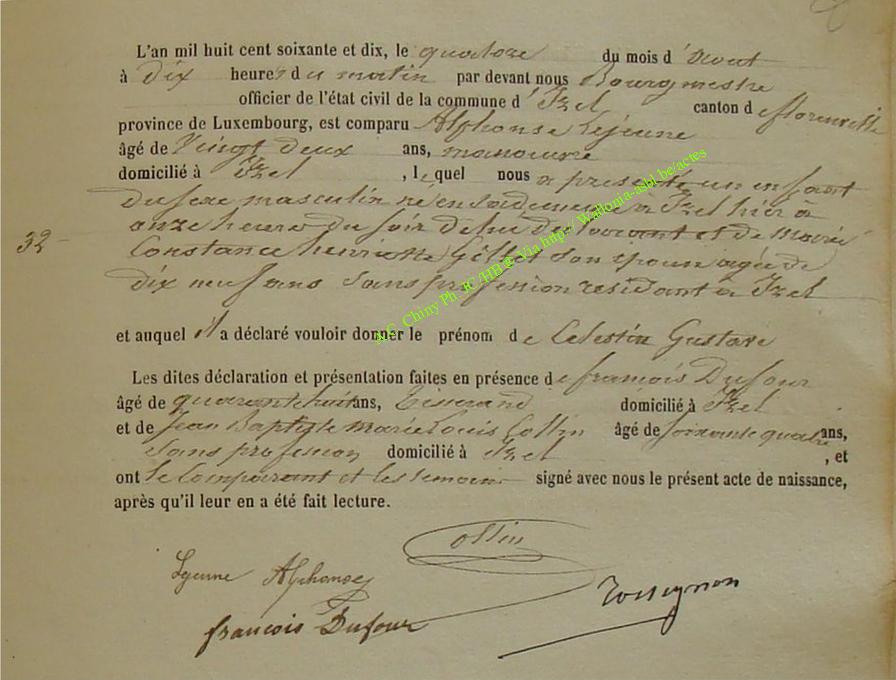 L'an mil huit cent soixante et dix, le quatorze du mois d'Aout
à dix heures du matin par devant nous Bourgmestre
officier de l'état civil de la commune d'Izel canton de florenville
province de Luxembourg, est comparu Alphonse Lejeune
âgé de Vingt deux ans, manoeuvre
domicilié à Izel, lequel nous a presenté un enfant
du sexe masculin né en sa demeure à Izel hier à
onze heures du soir de lui et de Marie
Constance henriette Gillet son épouse agée de
dix neuf ans sans profession residant à Izel
32
et auquel il a déclaré vouloir donner le prénom de Celestin Gustave
Les dites déclaration et présentation faites en présence de francois Dufour
âgé de quarant huit ans, Tisserand domicilié à Izel
et de Jean Baptiste Marie Louis Collin âgé de soixante quatre ans,
sans profession domicilié à Izel, et
ont le comparant et les temoins signé avec nous le présent acte de naissance,
après qu'il leur en a été fait lecture.
Collin
Lejeune Alphonse
Rossignon
francois Dufour
A.G. Chiny Ph. JC /HB © Via http:// Wallonia-asbl.be/actes